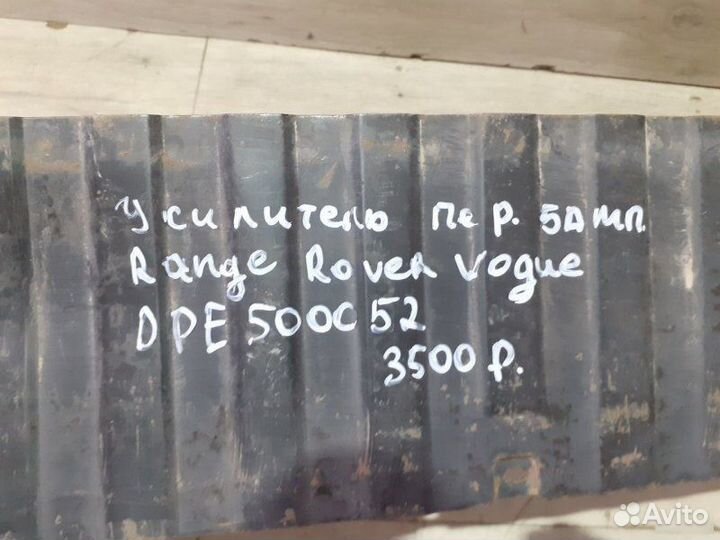 Усилитель пер. бамп.
Range Rover Vogue
DPE500052
3500 р.
Avito